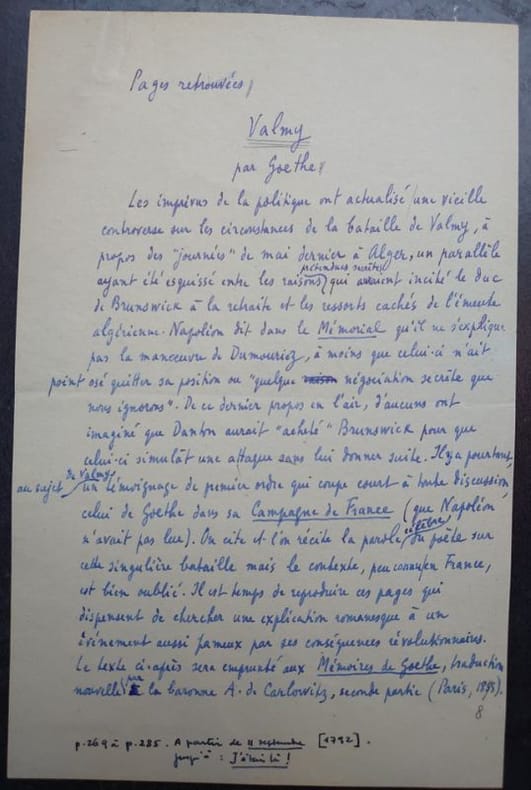 Pages retrouvées
Valmy
par Goethe
Les imprévus de la politique ont actualisé une vieille
controverse sur les circonstances de la bataille de Valmy, à
propos des "journées" de mai dernier à Alger, un parallèle
ayant été esquissé entre les raisons prétendues secrètes qui avaient incité le duc
de Brunswick à la retraite et les ressorts cachés de l'émeute
algérienne. Napoléon dit dans le Mémorial qu'il ne s'explique
pas la manœuvre de Dumouriez, à moins que celui-ci n'ait
point osé quitter sa position ou "quelque raison négociation secrète que
nous ignorons". De ce dernier propos en l'air, d'aucuns ont
imaginé que Danton aurait "acheté" Brunswick pour que
celui-ci simulât une attaque sans lui donner suite. Il y a pourtant,
au sujet de Valmy, un témoignage de premier ordre qui coupe court à toute discussion,
celui de Goethe dans sa Campagne de France (que Napoléon
n'avait pas lue). On cite et l'on récite la parole célèbre du poète sur
cette singulière bataille mais le contexte, peu connu en France,
est bien oublié. Il est temps de reproduire ces pages qui
dispensent de chercher une explication romanesque à un
événement aussi fameux par ses conséquences révolutionnaires.
Le texte ci-après sera emprunté aux Mémoires de Goethe, traduction
nouvelle par la baronne A. de Carlowitz, seconde partie (Paris, ).
8
p. 269 à p. 285. A partir de 11 septembre [1792].
jusqu'à : J'étais là !